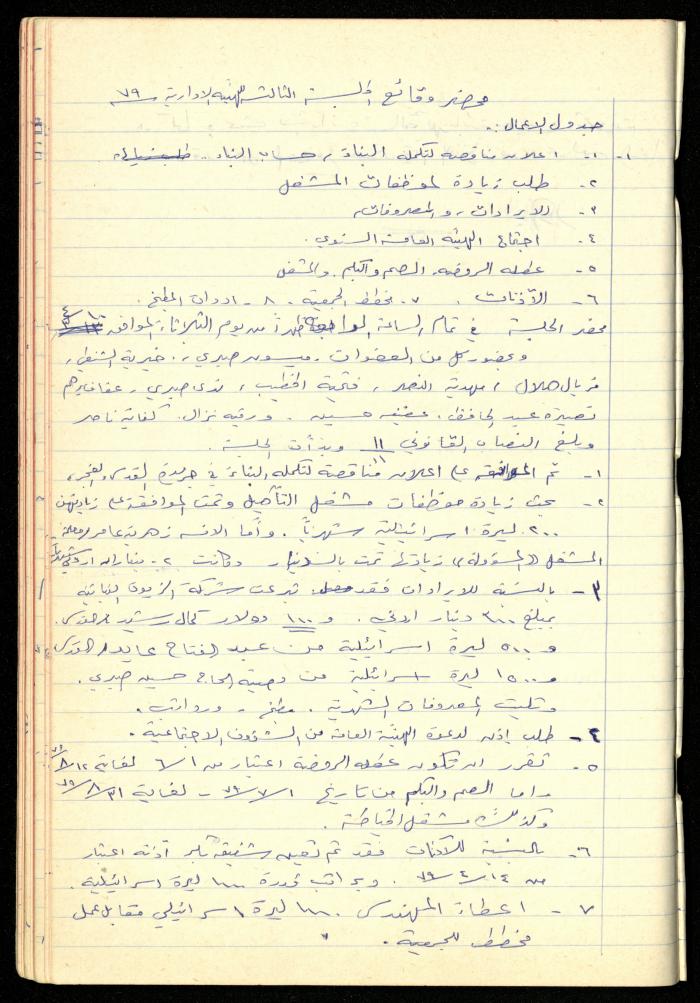 محضر وقائع الجلسة الثالثة للهيئة الادارية ٧٩
جدول الاعمال :.
١- ١- اعلان مناقصة لتكملة البناء , حساب البناء .
٢- طلب زيادة لموظفات المشغل
٣- للايرادات , والمصروفات ,
٤- اجتماع الهيئة العامة السنوي .
٥- عطله الروضه , الصم والبكم . والمشغل
٦- الآذنات . ٧- مخطط الجمعية . ٨- ادوات المطبخ .
محضر الجلسة في تمام الساعة الواحدة ظهراً من يوم الثلاثاء الموافق
وبحضور كل من العضوات , ميسون صبري , . خيرية الشنطي ,
فريال هلال , مهدية النصر , فتحية الخطيب , ندى صبري , عفاف
نصيرة عبد الحافظ . عفيفه حسين . ورقيه نزال . كفاية ناصر
وبلغ النصاب القانوني ١١ وبدأت الجلسة .
١- تم الموافقه على اعلان مناقصة لتكملة البناء في جريدة القدس والفجر ,
٢- بحث زيادة موظفات مشغل التأهيل وتمت الموافقة على زيادتهن
٢٠٠ ليرة اسرائيلية شهرياً . وأما الانسه زهرية عامر (معلمة
المشغل (المسؤولة) زيادتها تمت بالدينار وكانت ٢٠ دينار اردني شهرياً
٣- بالنسبة للايرادات فقد تبرعت شركة الزيوت النباتية
بمبلغ ٣٠٠ دينار اردني . و ١٠٠ دولار كمال رشيد
و ٥٠٠ ليرة اسرائيلية من عبد الفتاح عابد
و ١٥٠٠ ليرة اسرائيلية من وصية الحاج حسين صبري .
وتليت المصروفات الشهرية . مطبخ - ورواتب .
٤- طلب إذن لدعوة الهيئة العامة من الشؤون الاجتماعية .
٥- تقرر ان تكون عطله الروضة اعتبار من ٦/١ لغاية ٨/١٢ /٧٩
واما الصم والبكم من تاريخ ٧/١ /٧٩ - لغاية ٨/٣١ /٧٩
وكذلك مشغل الخياطة .
٦- بالنسبة للآذنات فقد تم تعيين شفيقة آذنه اعتبار
من ٤/١٤ /٧٩ . وبراتب قدره ١٠٠٠ ليرة اسرائيلية .
٧- اعطاء المهندس ١٠٠٠ ليرة اسرائيلي مقابل عمل
مخطط للجمعية .